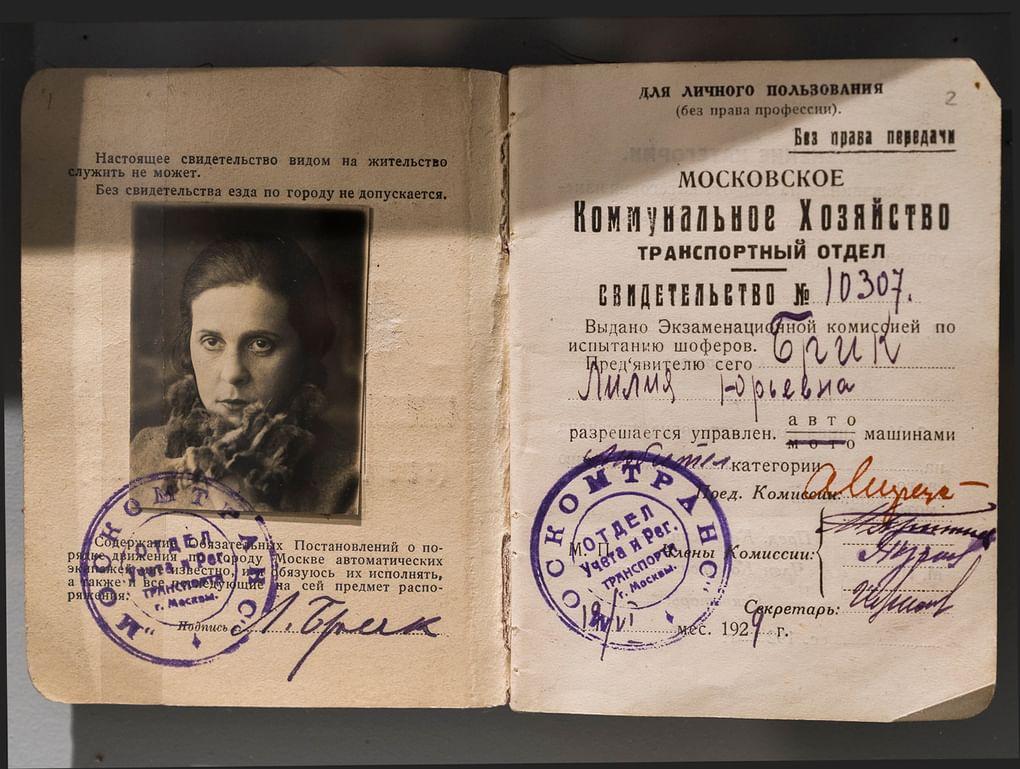 1
Настоящее свидетельство видом на жительство
служить не может.
Без свидетельства езда по городу не допускается.
Содержание Обязательных Постановлений о по-
рядке движения по городу Москве автоматических
экипажей мне известно, и обязуюсь их исполнять,
а также и все последующие на сей предмет распо-
ряжения.
Подпись Л. Брик
„МОСКОМТРАНС“
ОТДЕЛ
Учета и Рег.
ТРАНСПОРТА
г. Москвы.
2
ДЛЯ ЛИЧНОГО ПОЛЬЗОВАНИЯ
(без права профессии).
Без права передачи
МОСКОВСКОЕ
Коммунальное Хозяйство
ТРАНСПОРТНЫЙ ОТДЕЛ
СВИДЕТЕЛЬСТВО № 10307.
Выдано Экзаменационной комиссией по
испытанию шоферов.
Пред'явителю сего Брик
Лилия Юрьевна
разрешается управлен. авто мото машинами
категории
Пред. Комиссии:
М. П. Члены Комиссии:
Секретарь:
мес. 1929 г.
„МОСКОМТРАНС“
ОТДЕЛ
Учета и Рег.
ТРАНСПОРТА
г. Москвы.